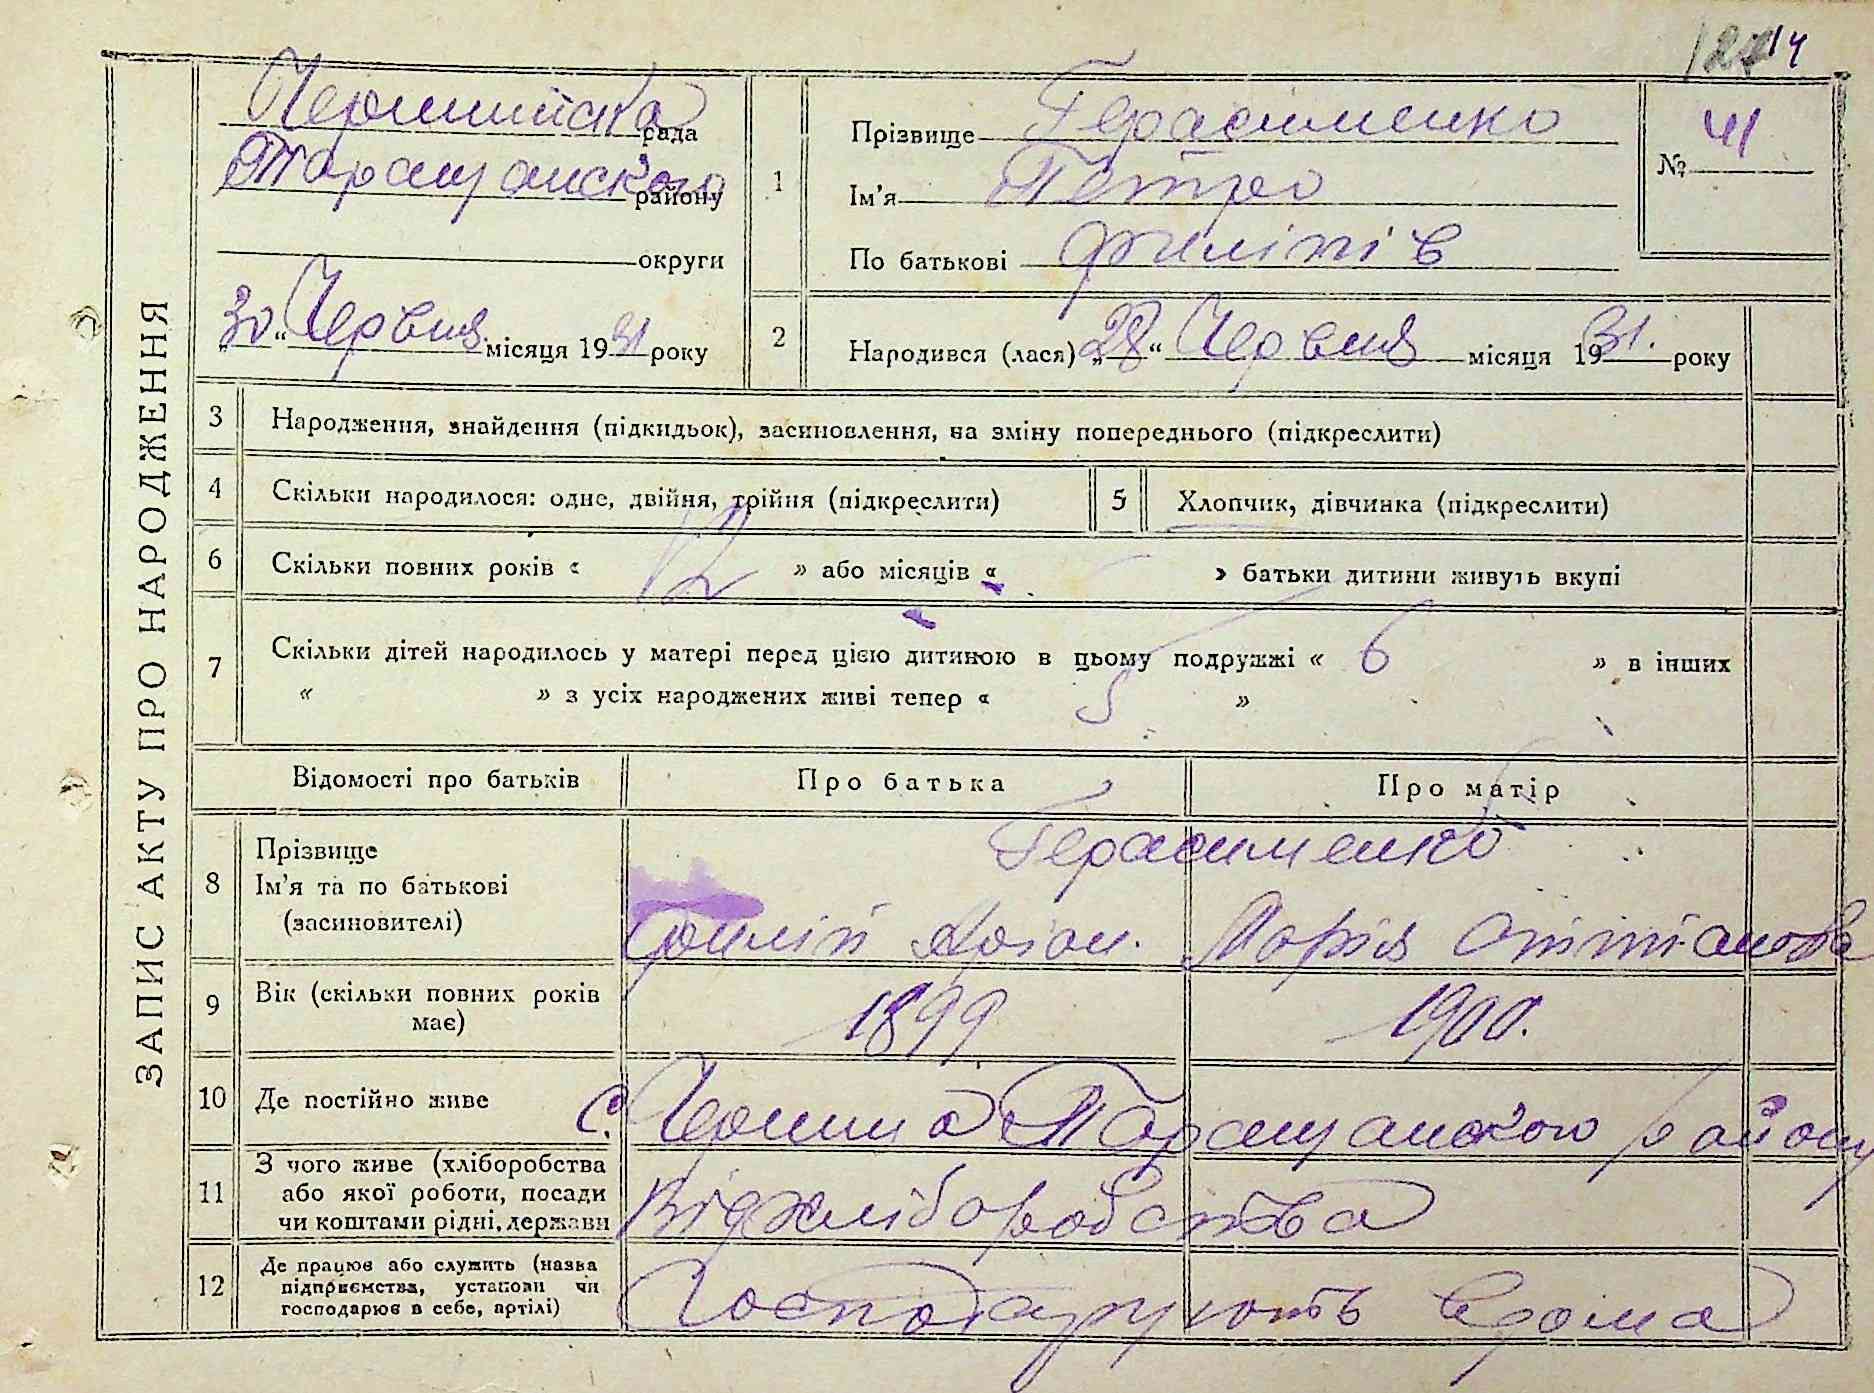 14
ЗАПИС АКТУ ПРО НАРОДЖЕННЯ
рада
Таращанського району
округи
„30“ Червня місяця 1931 року
1
Прізвище Герасименко
Ім'я Петро
По батькові Филіпів
№ 41
2
Народився (лася) „28“ Червня місяця 1931. року
3 Народження, знайдення (підкидьок), засиновлення, на зміну попереднього (підкреслити)
4 Скільки народилося: одне, двійня, трійня (підкреслити)
5 Хлопчик, дівчинка (підкреслити)
6 Скільки повних років « 12 » або місяців « » батьки дитини живуть вкупі
7 Скільки дітей народилось у матері перед цією дитиною в цьому подружжі « 6 » в інших
« » з усіх народжених живі тепер « 5 »
Відомості про батьків Про батька Про матір
8 Прізвище
Ім'я та по батькові
(засиновителі)
Герасименко
Филіп Марія
9 Вік (скільки повних років
має)
1899 1900.
10 Де постійно живе с. Чернина Таращанського району
11 З чого живе (хліборобства
або якої роботи, посади
чи коштами рідні, держави
Від хліборобства
12 Де працює або служить (назва
підприємства, установи чи
господарює в себе, артілі)
Господарують вдома